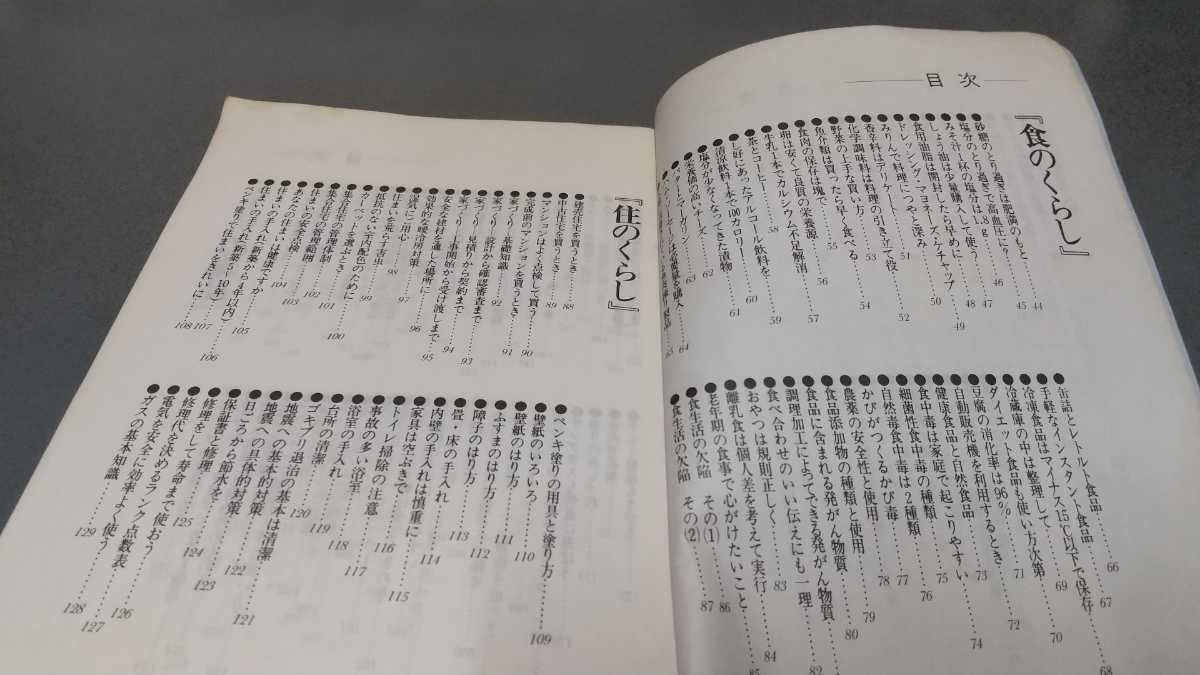 目次
『食のくらし』
●砂糖のとり過ぎは肥満のもと……44
●塩分のとり過ぎで高血圧に?……45
●みそ汁1杯の塩分は1.8g……46
●しょう油は少量購入して使う……47
●食用油脂は開封したら早めに……48
●ドレッシング・マヨネーズ・ケチャップ……49
●みりんで料理につやと深み……50
●香辛料はデリケート……51
●化学調味料は料理の引き立て役……52
●野菜の上手な買い方……53
●魚介類は買ったら早く食べる……54
●食肉の保存は塊で……55
●卵は安くて良質の栄養源……56
●牛乳1本でカルシウム不足解消……57
●茶とコーヒー……58
●し好にあったアルコール飲料を……59
●清涼飲料1本で100カロリー……60
●塩分が少なくなってきた漬物……61
●栄養価の高いチーズ……62
●バターとマーガリン……63
64
65
●缶詰とレトルト食品……66
●手軽なインスタント食品……67
●冷凍食品はマイナス15℃以下で保存……68
●冷蔵庫の中は整理して……69
●ダイエット食品も使い方次第……70
●豆腐の消化率は96%……71
●自動販売機を利用するとき……72
●健康食品と自然食品……73
●食中毒は家庭で起こりやすい……74
●細菌性食中毒の種類……75
●自然毒食中毒は2種類……76
●かびがつくるかび毒……77
●農薬の安全性と使用……78
●食品添加物の種類と使用……79
●食品に含まれる発がん物質……80
●調理加工によってできる発がん物質
●食べ合わせのいい伝えにも一理……82
●おやつは規則正しく……83
●離乳食は個人差を考えて実行……84
●老年期の食事で心がけたいこと……85
●食生活の欠陥 その(1)……86
●食生活の欠陥 その(2)……87
『住のくらし』
●建売住宅を買うとき……88
●中古住宅を買うとき……89
●マンションはよく点検して買う……90
●完成前のマンションを買うとき……91
●家づくり 基礎知識……92
●家づくり 設計から確認審査まで……93
●家づくり 見積りから契約まで……94
●家づくり 工事開始から受け渡しまで……95
●安全な建材を適した場所に……96
●効果的な暖冷房対策……97
●湿気にご用心……98
●住まいを荒らす害虫……99
●抵抗のない室内配色のために……100
●カーペットを選ぶとき……101
●集合住宅の管理体制……102
●集合住宅の管理範囲……103
●住まいの安全点検……104
●あなたの住まいは健康ですか……105
●住まいの手入れ(新築から4年以内)……106
●住まいの手入れ(新築5~10年)……107
●ペンキ塗りで住まいをきれいに……108
●ペンキ塗りの用具と塗り方……109
●壁紙のいろいろ……110
●壁紙のはり方……111
●ふすまのはり方……112
●障子のはり方……113
●畳・床の手入れ……114
●内壁の手入れは慎重に……115
●家具は空ぶきで……116
●トイレ掃除の注意……117
●事故の多い浴室……118
●浴室の手入れ……119
●台所の清潔……120
●ゴキブリ退治の基本は清潔……121
●地震への基本的対策……122
●地震への具体的対策……123
●日ごろから節水を……124
●保証書と修理……125
●修理をして寿命まで使おう……126
●修理代を決めるランク点数表……127
●電気を安全に効率よく使う……128
●ガスの基本知識……129